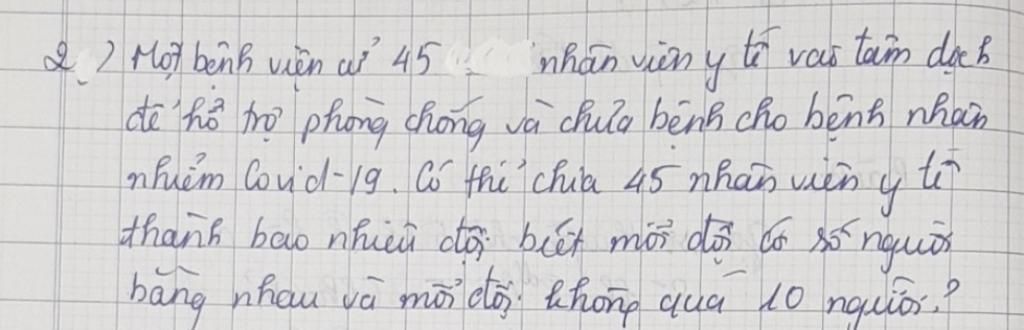 2) Một bệnh viện cử 45 nhân viên y tế vào tâm dịch
để hỗ trợ phòng chống và chữa bệnh cho bệnh nhân
nhiễm Covid-19. Có thể chia 45 nhân viên y tế
thành bao nhiêu đội biết mỗi đội có số người
bằng nhau và mỗi đội không quá 10 người?